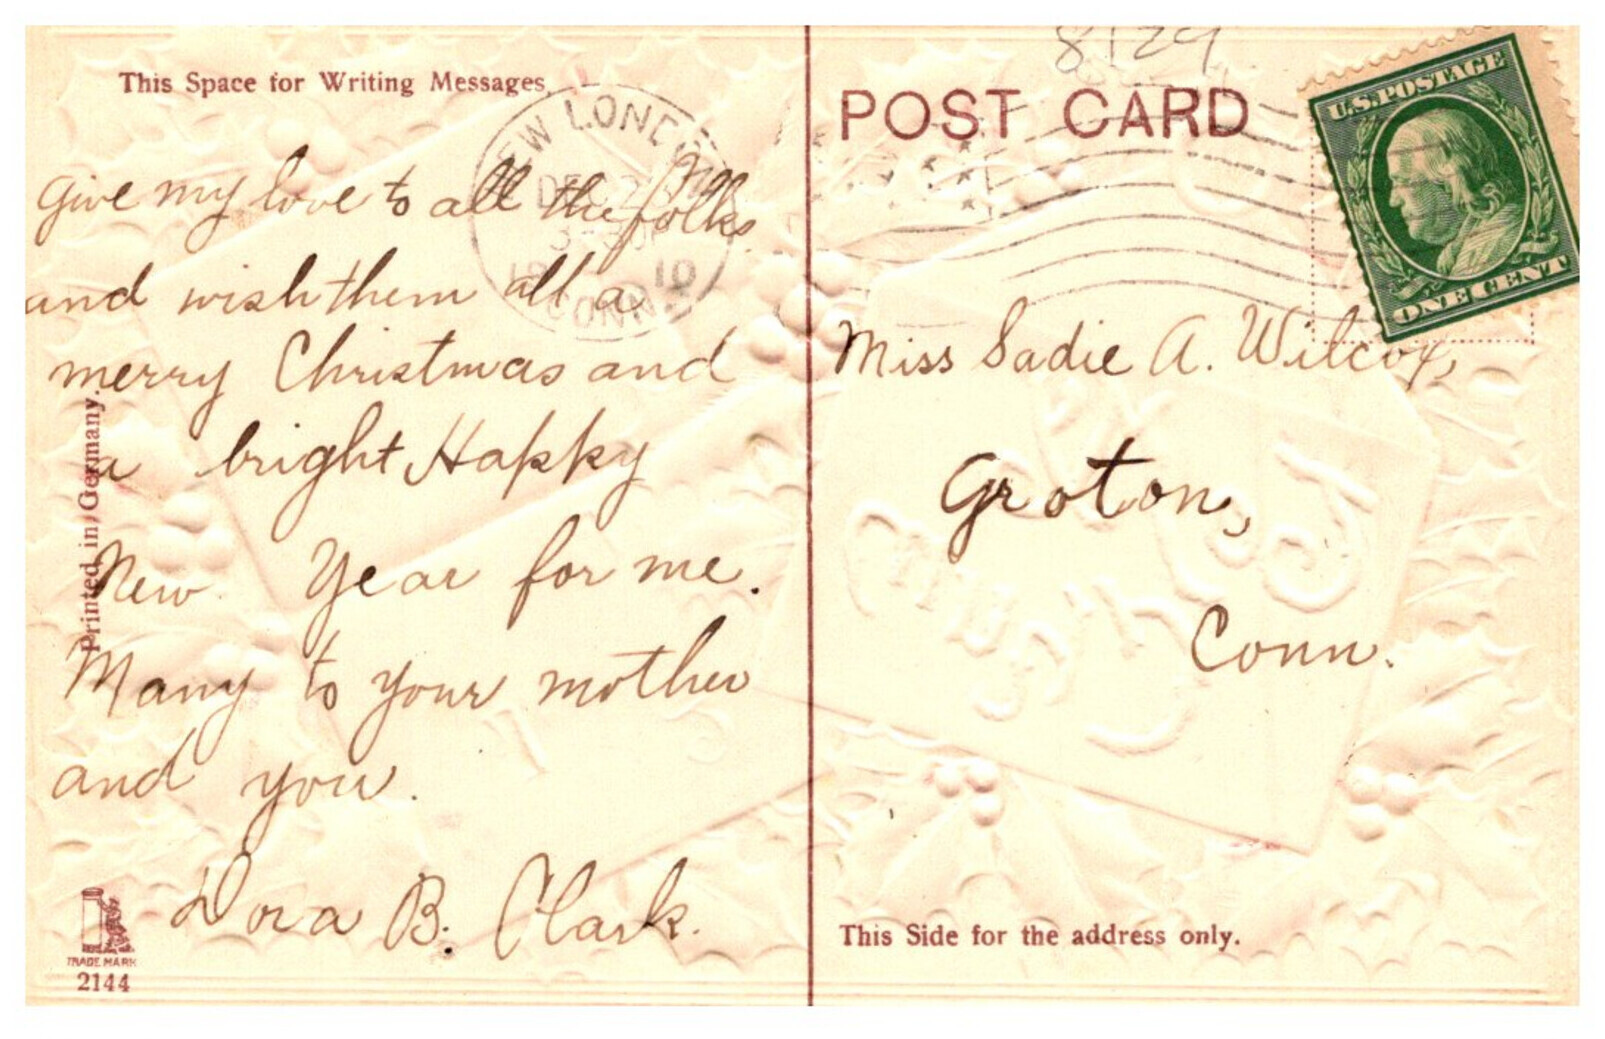 This Space for Writing Messages
give my love to all the folks
and wish them all a
merry Christmas and
a bright Happy
New Year for me.
Many to your mother
and you.
Dora B. Clark.
Printed in Germany.
TRADE MARK
2144
NEW LONDON
DEC
3-30P
19 10
CONN
8129
POST CARD
U.S. POSTAGE
ONE CENT
Miss Sadie A. Wilcox,
Groton,
Conn.
This Side for the address only.